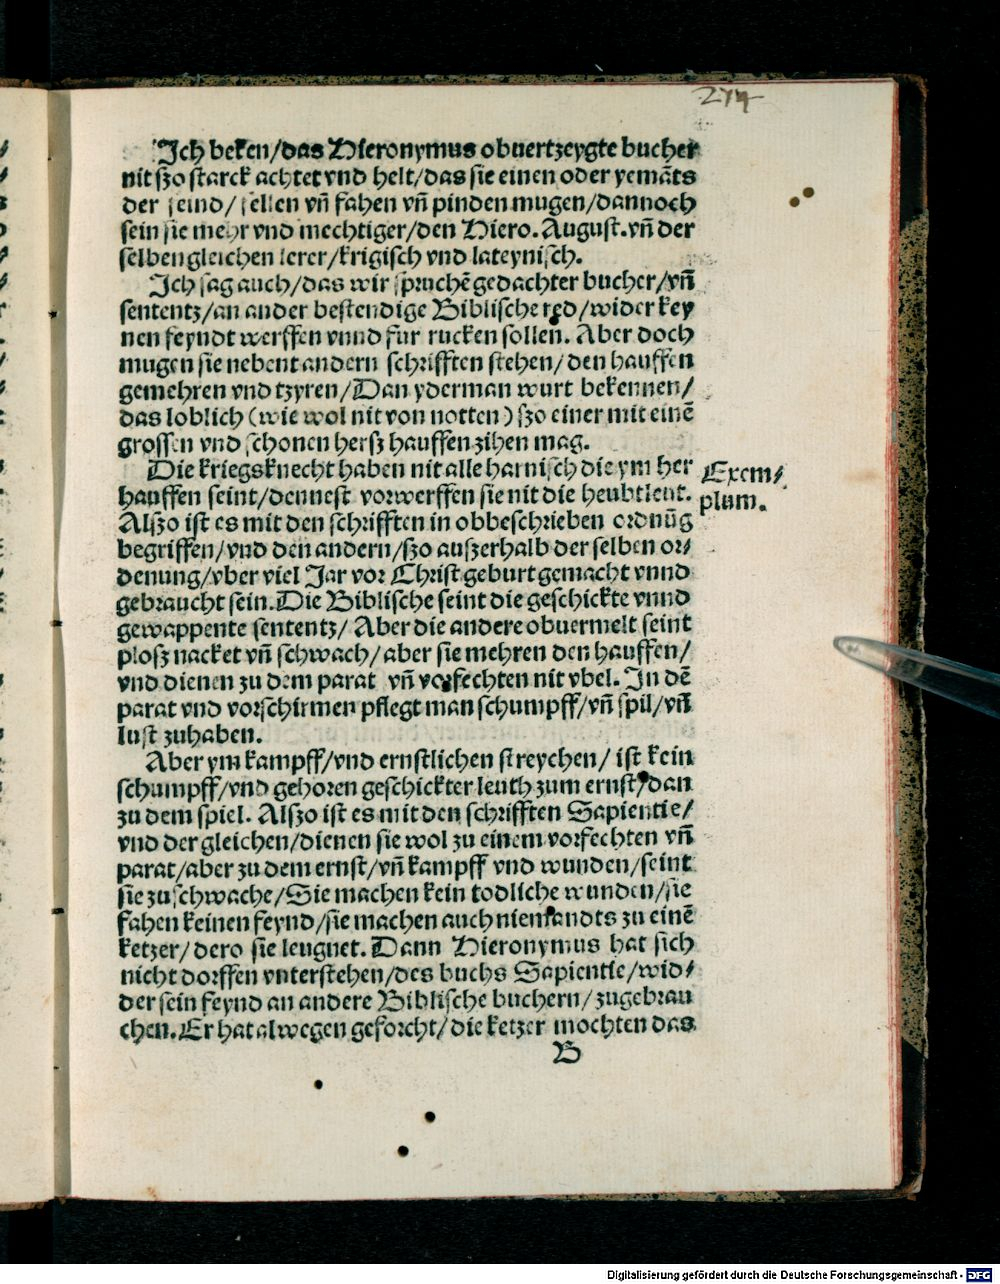 274
Jch beken/das Hieronymus obuertzeygte bucher
nit szo starck achtet vnd helt/das sie einen oder yemãts
der feind/fellen vñ fahen vñ pinden mugen/dannoch
sein sie mehr vnd mechtiger/den Hiero. August. vñ der
selben gleichen lerer/krigisch vnd lateynisch.
Jch sag auch/das wir spruchẽ gedachter bucher/vñ
sententz/an ander bestendige Biblische red/wider key
nen feyndt werffen vnnd fur rucken sollen. Aber doch
mugen sie nebent andern schrifften stehen/den hauffen
gemehren vnd tzyren/Dan yderman wurt bekennen/
das loblich (wie wol nit von notten) szo einer mit einẽ
grossen vnd schonen hersz hauffen zihen mag.
Die kriegsknecht haben nit alle harnisch die ym her
hauffen seint/dennest vorwerffen sie nit die heubtleut.
Alszo ist es mit den schrifften in obbeschrieben ordnũg
begriffen/vnd den andern/szo auszerhalb der selben or⸗
denung/vber viel Jar vor Christ geburt gemacht vnnd
gebraucht sein. Die Biblische seint die geschickte vnnd
gewappente sententz/ Aber die andere obuermelt seint
plosz nacket vñ schwach/aber sie mehren den hauffen/
vnd dienen zu dem parat vñ vorfechten nit vbel. Jn dẽ
parat vnd vorschirmen pflegt man schumpff/vñ spil/vñ
lust zuhaben.
Aber ym kampff/vnd ernstlichen streychen/ ist kein
schumpff/vnd gehoren geschickter leuth zum ernst/dan
zu dem spiel. Alszo ist es mit den schrifften Sapientie/
vnd der gleichen/dienen sie wol zu einem vorfechten vñ
parat/aber zu dem ernst/vñ kampff vnd wunden/seint
sie zu schwache/Sie machen kein todliche wunden/sie
fahen keinen feynd/sie machen auch niemandts zu einẽ
ketzer/dero sie leugnet. Dann Hieronymus hat sich
nicht dorffen vnterstehen/des buchs Sapientie/wid⸗
der sein feynd an andere Biblische buchern/zugebrau
chen. Er hat alwegen geforcht/die ketzer mochten das
B
Exem⸗
plum.
Digitalisierung gefördert durch die Deutsche Forschungsgemeinschaft - DFG